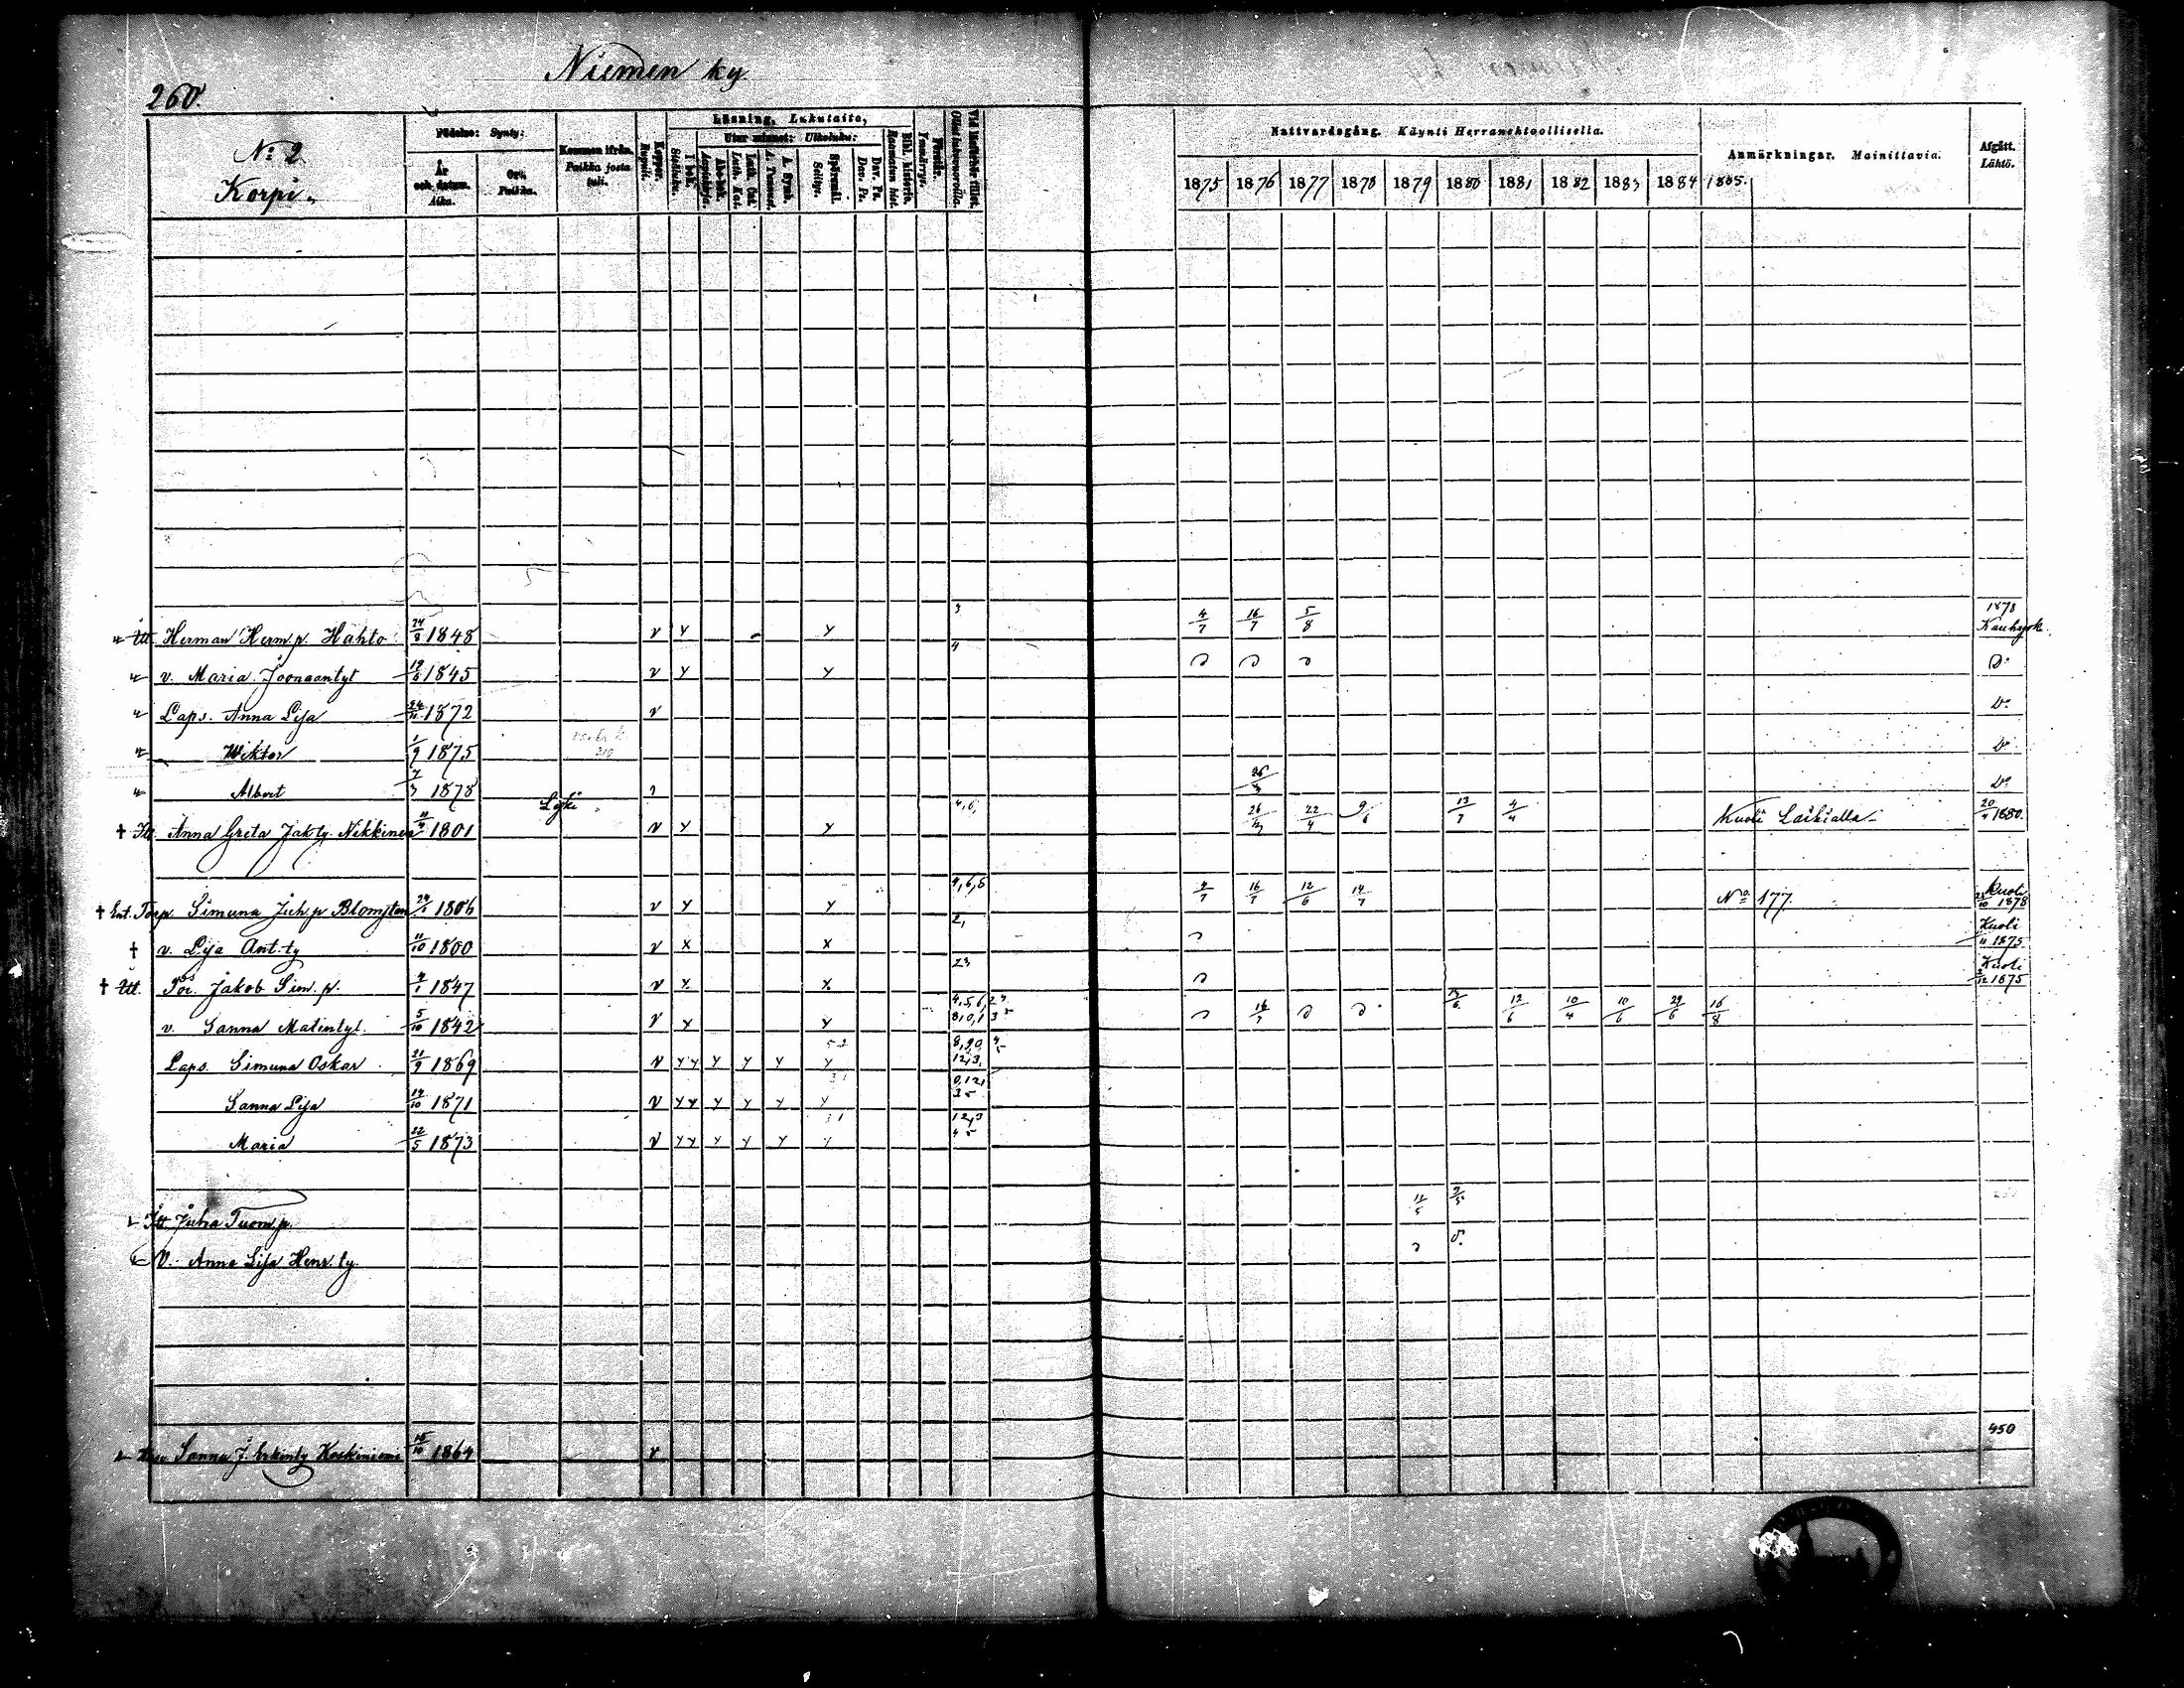 Niemen ky.
260.
No 2
Korpi.
Födelse: Synty:
År och datum. Aika.
Ort. Paikka.
Kommen ifrån. Paikka josta tuli.
Koppor. Rupuli.
Läsning, Lukutaito,
I bok. Sisäluku.
Utur minnet: Ulkoluku:
Abc-bok. Aapiskirja.
Luth. Kat.
A. Symb. A. Tunnust.
Spörsmål. Selitys.
Dav. Ps. Dav. Ps.
Bibl. historia. Raamatun hist.
Försvår. Ymmärrys.
Vid läsförhör tillst. Ollut lukuvuoroilla.
Nattvardsgång. Käynti Herranehtoollisella.
1875 1876 1877 1878 1879 1880 1881 1882 1883 1884 1885.
Anmärkningar. Mainittavia.
Afgått. Lähtö.
Itt. Herman Herm.p. Hahto 24/8 1848 v y y 3 4/7 16/7 5/8 1878 Kauhajok.
v. Maria Joonaantyt 19/6 1845 v y y 4 Do
Laps. Anna Lisa 24/11 1872 v Do
Wiktor 1/9 1875 310 Do
Albert 7/3 1878 Do
† Itt. Anna Greta Jak.ty. Nikkinen 1801 v y y 4,6, 26/3 22/4 9/6 13/7 4/4 Kuoli Laihialla 20/4 1880.
† Ent. Torp. Simuna Juh.p Blomsten 24/1 1806 v y y 4,6,8 4/7 16/7 12/6 14/7 No 177. Kuoli 1878
† v. Lisa Ant.ty 11/10 1800 v x x 2, Kuoli 1875
† Itt. Poi. Jakob Sim.p. 4/1 1847 v x x 23 Kuoli 2/12 1875
v. Sanna Matintyt. 5/10 1842 v y y 4,5,6, 8,0,1 16/7 13/6 12/6 10/4 10/6 29/6 16/8
Laps. Simuna Oskar 21/9 1869 v y y y y y y 52 8,9,0 12,3,
Sanna Lisa 14/10 1871 v y y y y y y 31 0,12,
Maria 22/5 1873 v y y y y y y 31 12,3 45
Itt Juha Tuom.p. 11/5 2/5
V. Anna Lisa Henr.ty.
Sanna J. Erkinty Koskiniemi 15/10 1864 v 450